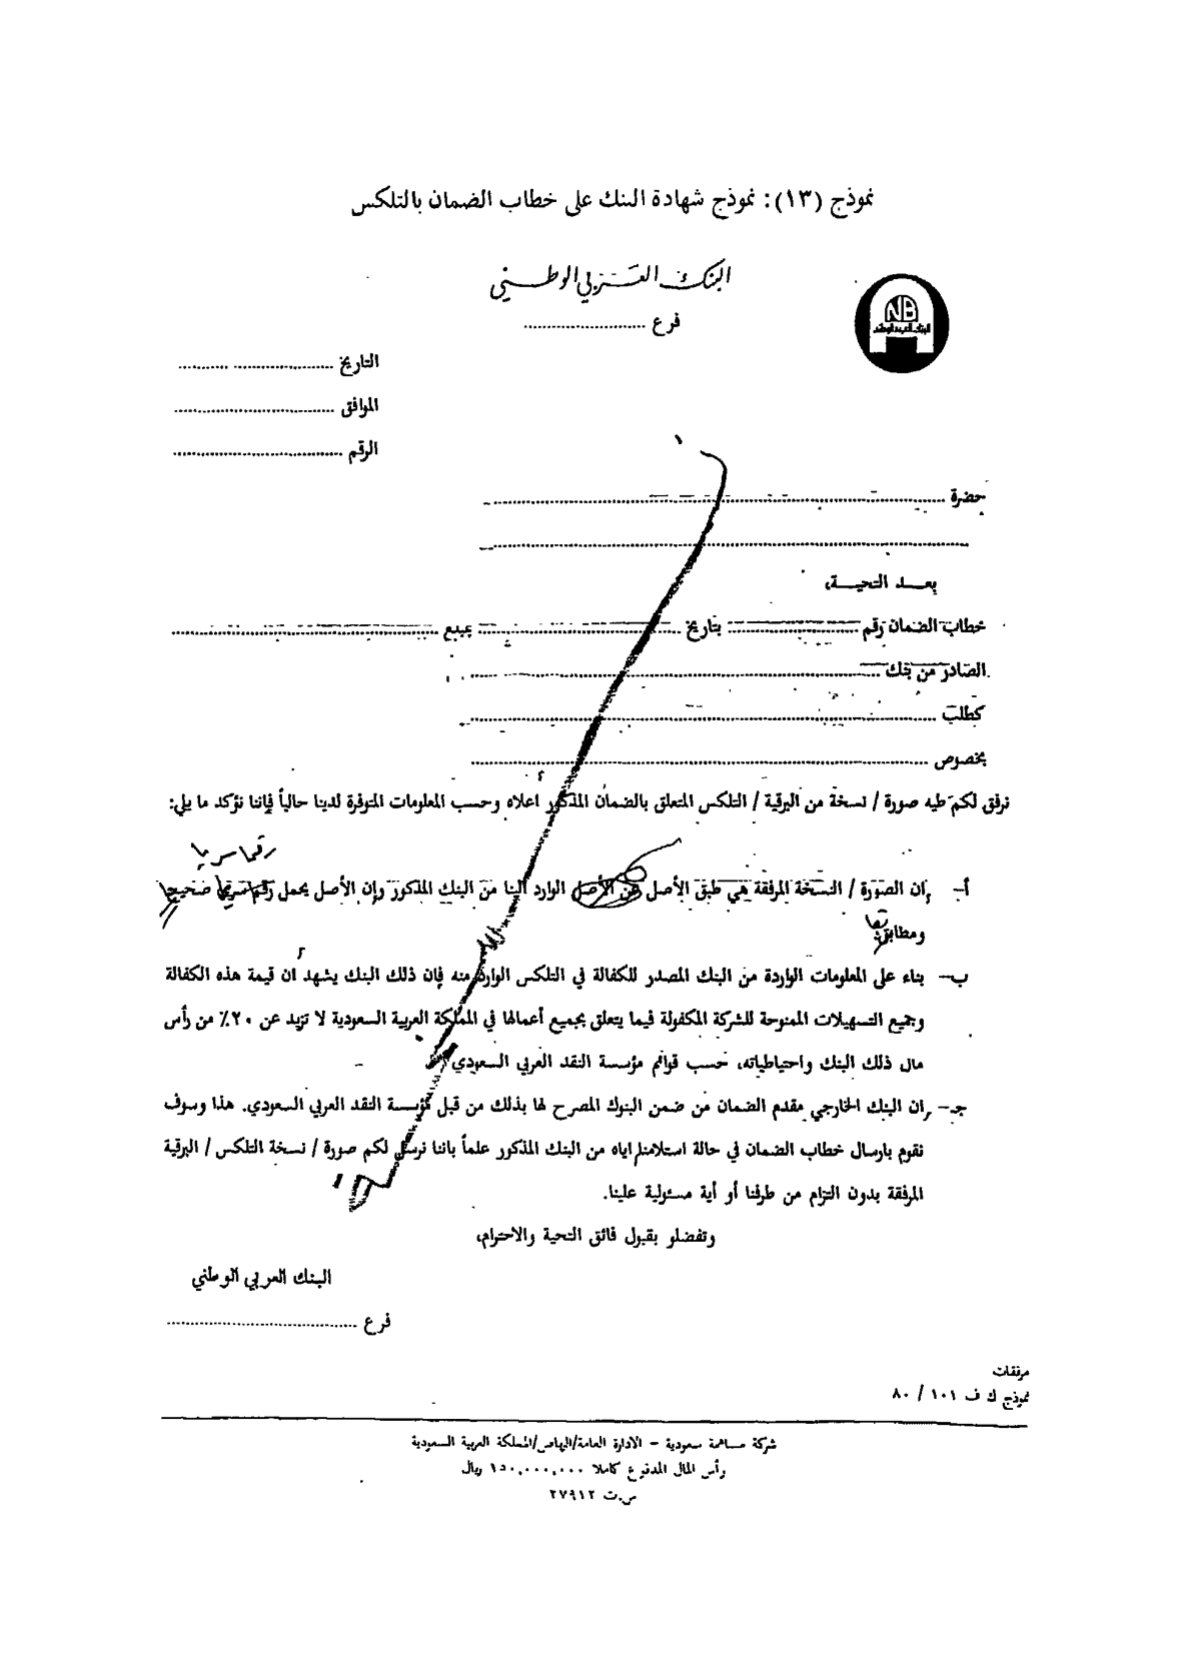 نموذج (١٣): نموذج شهادة البنك على خطاب الضمان بالتلكس
البنك العربي الوطني
NB
البنك العربي الوطني
فرع ........................
التاريخ ................................
الموافق ................................
الرقم ................................
حضرة ................................
................................
بعد التحية،
خطاب الضمان رقم ................ بتاريخ ................ بمبلغ ................
الصادر من بنك ................................
كطلب ................................
بخصوص ................................
نرفق لكم طيه صورة / نسخة من البرقية / التلكس المتعلق بالضمان المذكور اعلاه وحسب المعلومات المتوفرة لدينا حالياً فإننا نؤكد ما يلي:
رقما سريا
أ- إن الصورة / النسخة المرفقة هي طبق الأصل عن الأصل الوارد الينا من البنك المذكور وإن الأصل يحمل رقم سري صحيح
ومطابق
ب- بناء على المعلومات الواردة من البنك المصدر للكفالة في التلكس الوارد منه فإن ذلك البنك يشهد ان قيمة هذه الكفالة
وجميع التسهيلات الممنوحة للشركة المكفولة فيما يتعلق بجميع أعمالها في المملكة العربية السعودية لا تزيد عن ٢٠٪ من رأس
مال ذلك البنك واحتياطياته، حسب قوائم مؤسسة النقد العربي السعودي
جـ- إن البنك الخارجي مقدم الضمان من ضمن البنوك المصرح لها بذلك من قبل مؤسسة النقد العربي السعودي. هذا وسوف
نقوم بارسال خطاب الضمان في حالة استلامنا اياه من البنك المذكور علماً باننا نرسل لكم صورة / نسخة التلكس / البرقية
المرفقة بدون التزام من طرفنا أو أية مسئولية علينا.
وتفضلو بقبول فائق التحية والاحترام،
البنك العربي الوطني
فرع ................................
مرفقات
نموذج ك ف ١٠١ / ٨٠
شركة مساهمة سعودية - الادارة العامة/الرياض/المملكة العربية السعودية
رأس المال المدفوع كاملا ١٥٠,٠٠٠,٠٠٠ ريال
س.ت ٢٧٩١٢